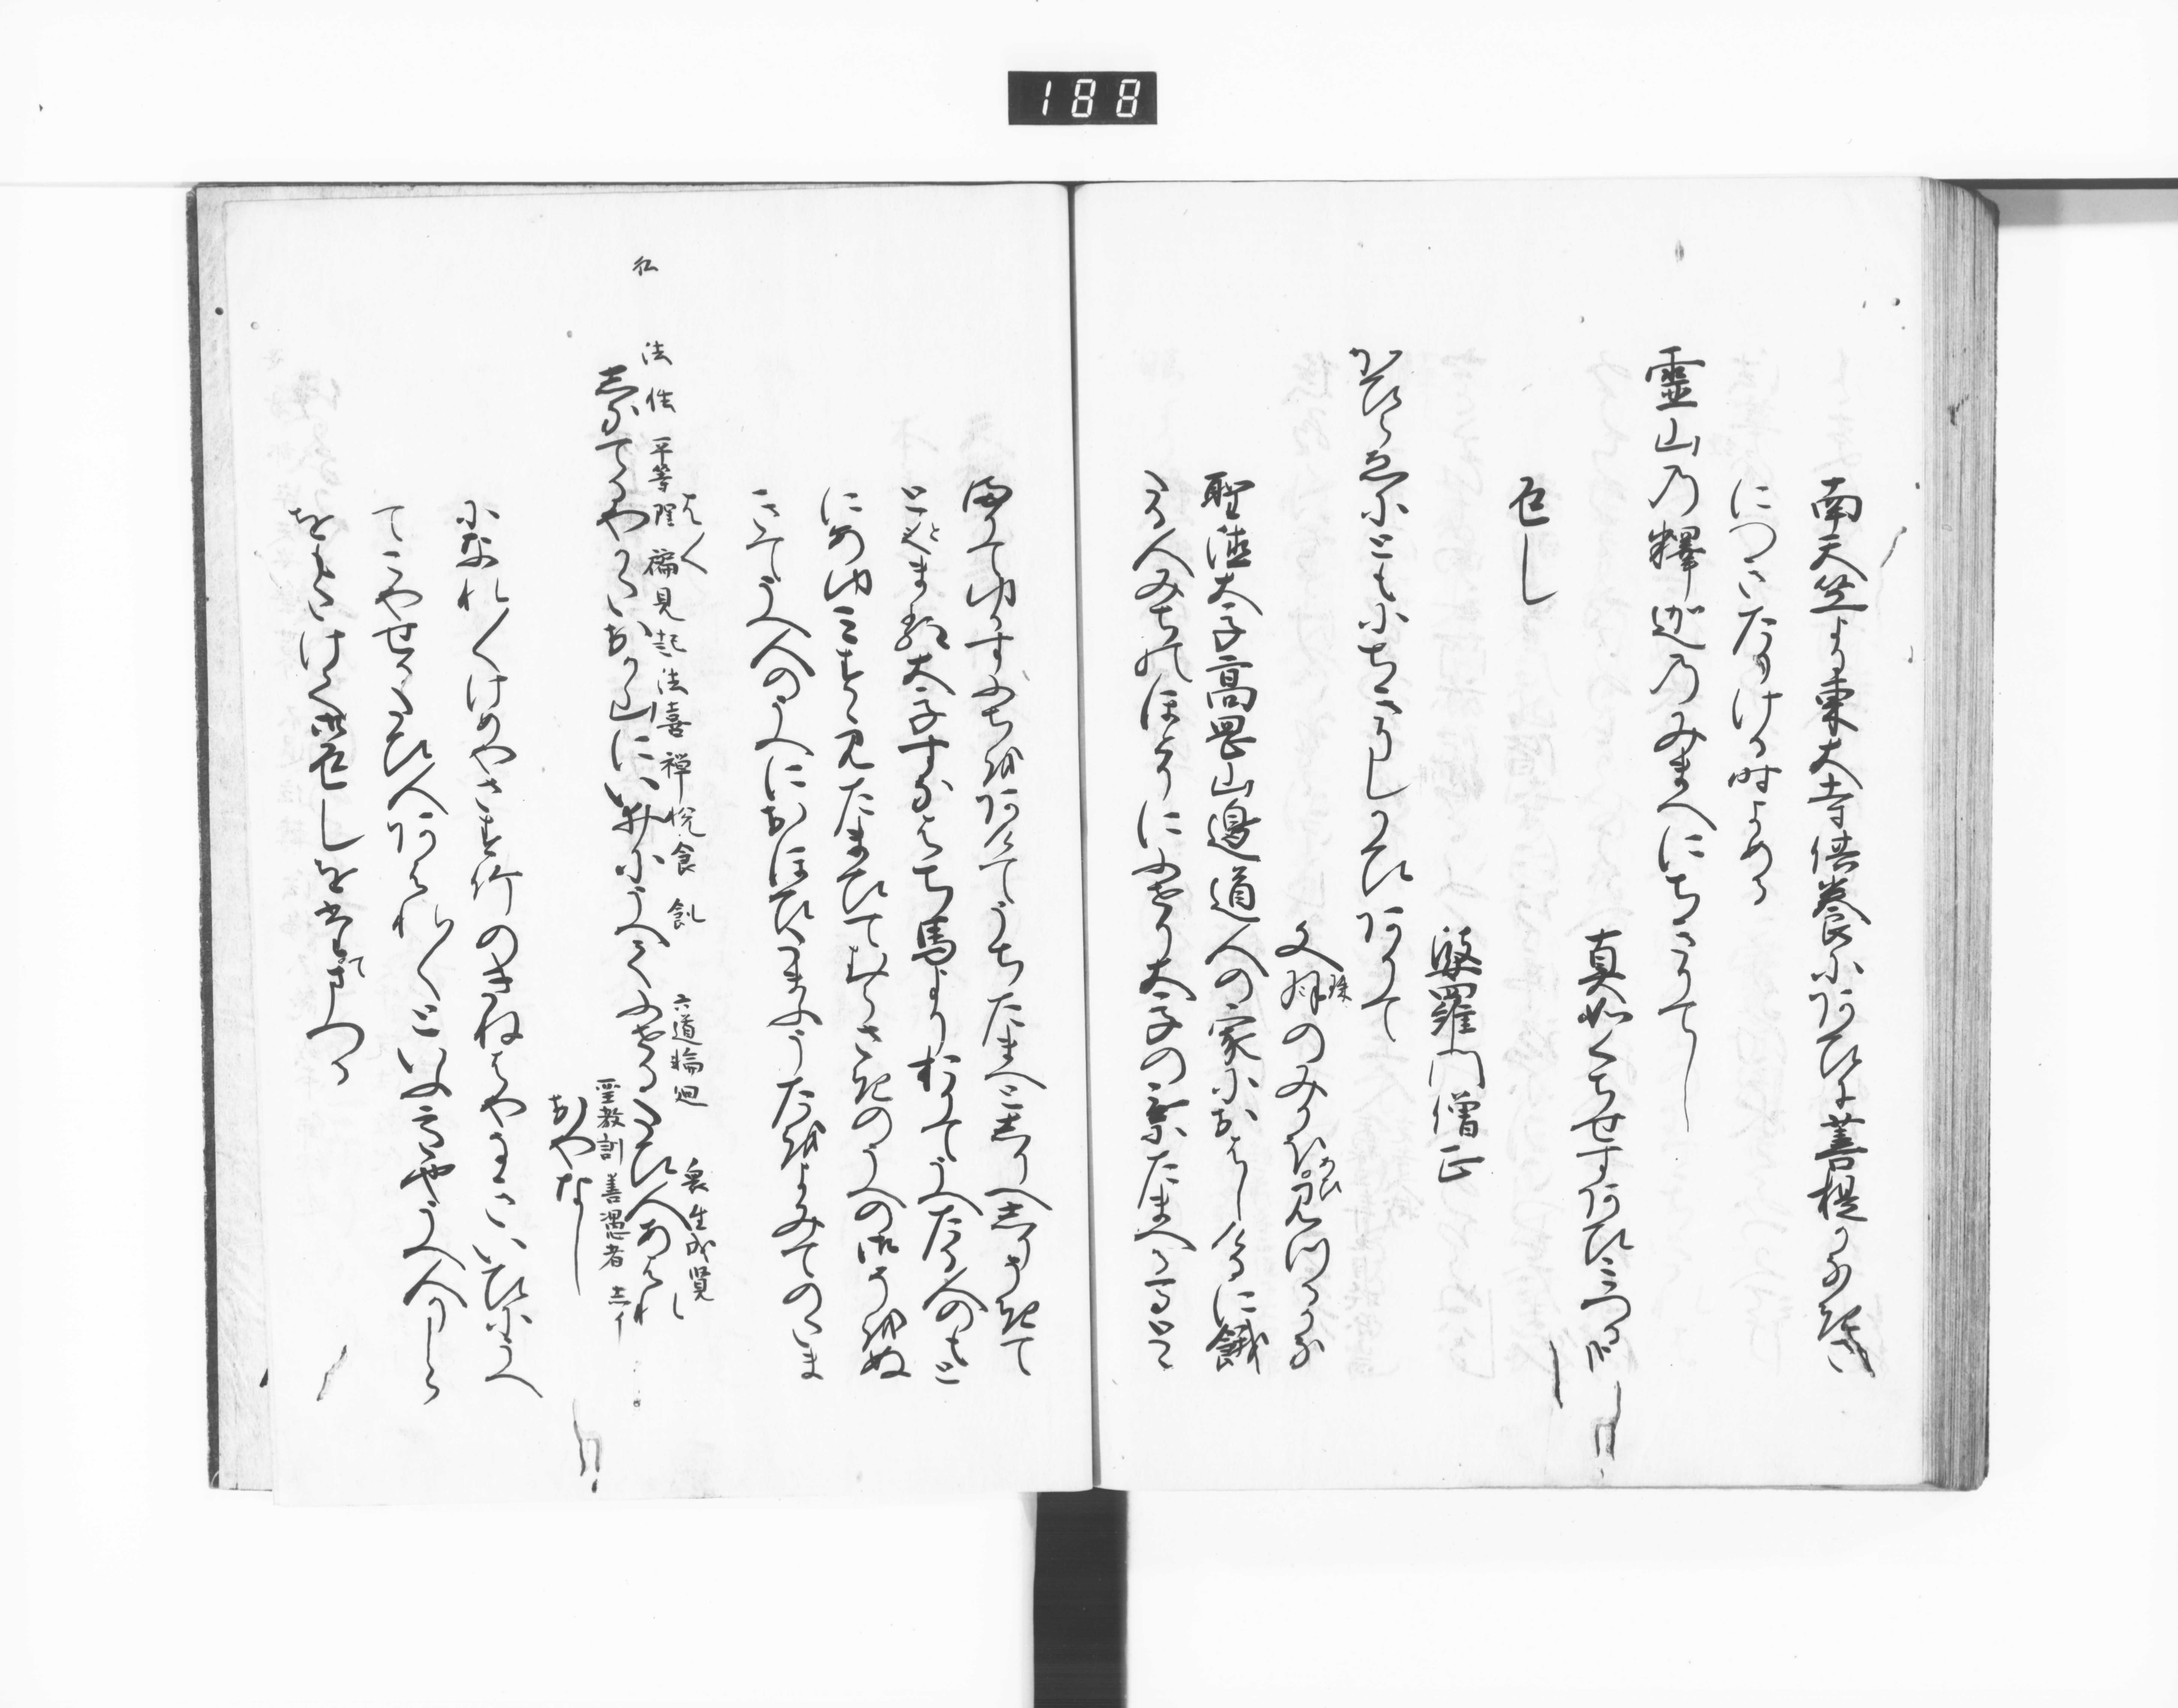 188
南天竺より東大寺供養にあひに菩提かなきさに
につきたりける時よめる
靈山乃釋迦乃みまへにちきりてし
真如くちせすあひみつる
返し
婆羅門僧正
かひらゑにともにちきりしかひありて
文殊のみかほあひ見つるかな
聖徳太子高岡山邊道人の家におはしけるに餓
たる人みちのほとりにふせり太子の乗たまへる馬と
まりてゆかすふちをあけてうちたまへとしりへしりそきて
とゝまる太子すなはち馬よりおりてうへたる人のもと
にあゆみすゝみたまひてむらさきのうへの御そをぬ
きてうへ人のうへにおほひたまふうたをよみてのたま
はく
法性 平等理 褊見起 法喜禅悦食 飢 六道輪廻 衆生成賢
しなてるやかたおか山にいひにうへてふせるたひ人あはれ
聖教訓善愚者
おやなし
になれ〱けめやさす竹のきねはやなきいひにうへ
てこやせるたひ人あはれ〱といふうた也うへ人かしら
をもたけて御返しをたてまつる